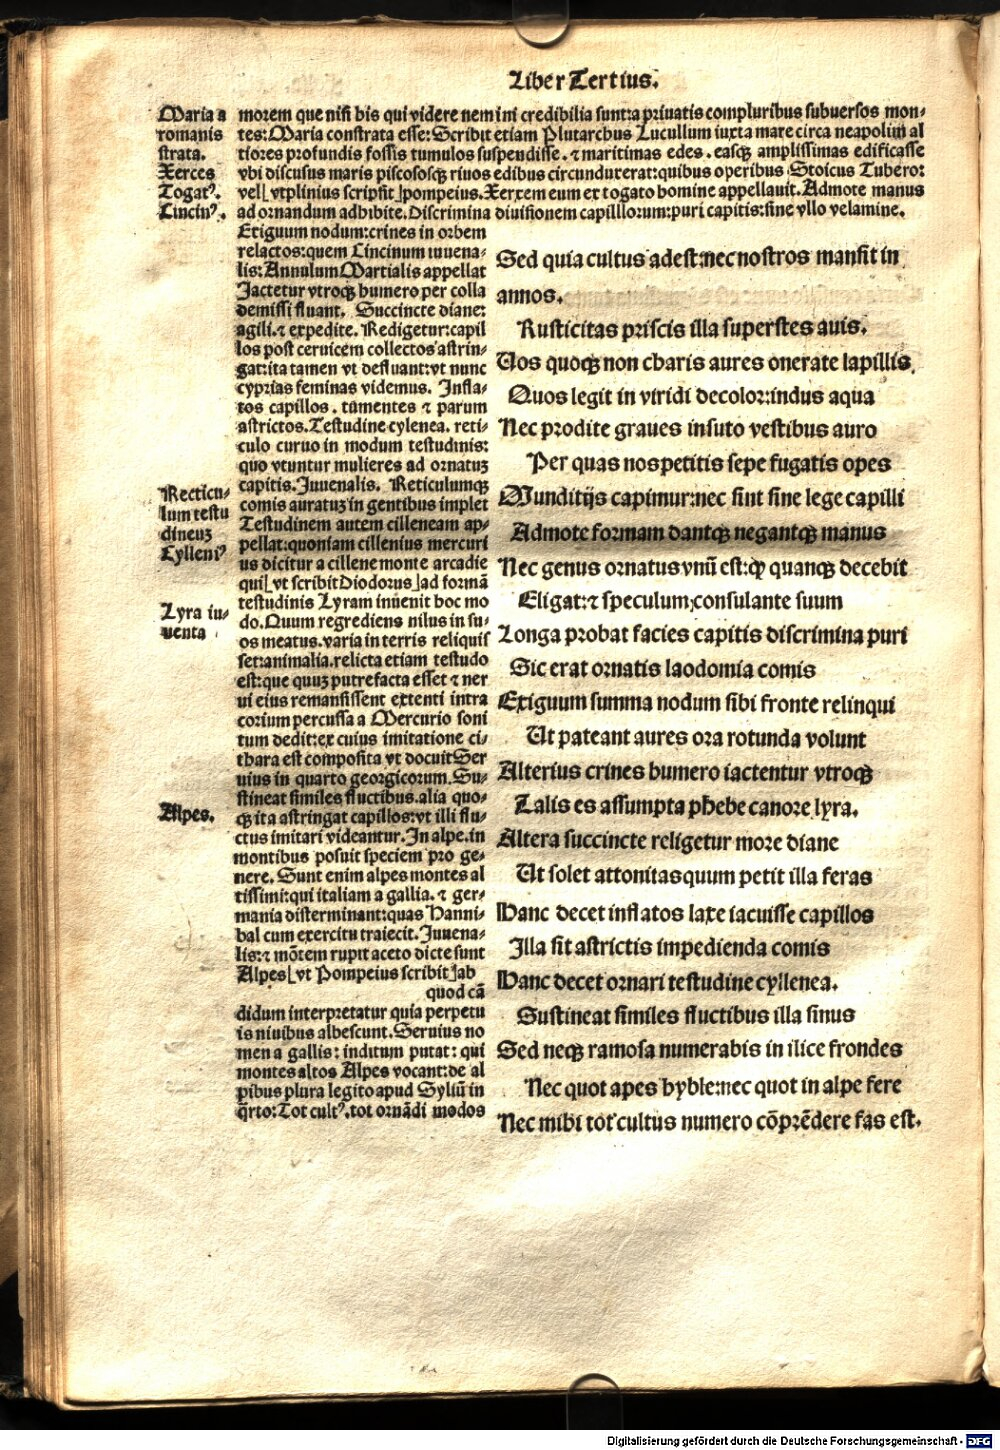 Liber Tertius.
Maria a
romanis
strata.
Xerces
Togatꝰ.
Cincinꝰ.
morem que nisi his qui videre nemini credibilia sunt:a priuatis compluribus subuersos mon-
tes:Maria constrata esse:Scribit etiam Plutarchus Lucullum iuxta mare circa neapolim al
tiores profundis fossis tumulos suspendisse. ⁊ maritimas edes. easqꝫ amplissimas edificasse
vbi discusus maris piscososqꝫ riuos edibus circundurerat:quibus operibus Stoicus Tubero:
vel[ vtplinius scripsit]pompeius.Xerxem eum ex togato homine appellauit. Admote manus
ad ornandum adhibite.Discrimina diuisionem capilllorum:puri capitis:sine vllo velamine.
Exiguum nodum:crines in orbem
relactos:quem Cincinum iuuena-
lis:Annulum Martialis appellat
Jactetur vtroqꝫ humero per colla
demissi fluant. Succincte diane:
agili.⁊ expedite. Redigetur:capil
los post ceruicem collectos astrin-
gat:ita tamen vt defluant:vt nunc
cyprias feminas videmus. Infla-
tos capillos. tumentes ⁊ parum
astrictos.Testudine cylenea. reti-
culo curuo in modum testudinis:
quo vtuntur mulieres ad ornatuꝫ
capitis.Juuenalis. Reticulumqꝫ
comis auratuꝫ in gentibus implet
Testudinem autem cilleneam ap-
pellat:quoniam cillenius mercuri
us dicitur a cillene monte arcadie
qui[ vt scribit Diodorus]ad formā
testudinis Lyram inuenit hoc mo
do.Quum regrediens nilus in su-
os meatus.varia in terris reliquis
set:animalia.relicta etiam testudo
est:que quuꝫ putrefacta esset ⁊ ner
ui eius remansissent extenti intra
corium percussa a Mercurio soni
tum dedit:ex cuius imitatione ci-
thara est composita vt docuit Ser
uius in quarto georgicorum.Su-
stineat similes fluctibus.alia quo-
qꝫ ita astringat capillos:vt illi flu-
ctus imitari videantur.In alpe.in
montibus posuit speciem pro ge-
nere. Sunt enim alpes montes al
tissimi:qui italiam a gallia. ⁊ ger-
mania disterminant:quas Hanni-
bal cum exercitu traiecit. Juuena-
lis:⁊ mōtem rupit aceto dicte sunt
Alpes[ vt Pompeius scribit]ab
quod cā
didum interpretatur quia perpetu
is niuibus albescunt.Seruius no
men a gallis: inditum putat: qui
montes altos Alpes vocant:de al
pibus plura legito apud Syliū in
q̄rto:Tot cultꝰ.tot ornādi modos
Recticu-
lum testu
dineuꝫ
Cylleniꝰ
Lyra in-
uenta
Alpes.
Sed quia cultus adest:nec nostros mansit in
annos.
Rusticitas priscis illa superstes auis.
Uos quoqꝫ non charis aures onerate lapillis,
Quos legit in viridi decolor:indus aqua
Nec prodite graues insuto vestibus auro
Per quas nos petitis sepe fugatis opes
Munditijs capimur:nec sint sine lege capilli
Admote formam dantqꝫ negantqꝫ manus
Nec genus ornatus vnū est:qꝫ quanqꝫ decebit
Eligat:⁊ speculum;consulante suum
Longa probat facies capitis discrimina puri
Sic erat ornatis laodomia comis
Exiguum summa nodum sibi fronte relinqui
Ut pateant aures ora rotunda volunt
Alterius crines humero iactentur vtroqꝫ
Talis es assumpta phebe canore lyra.
Altera succincte religetur more diane
Ut solet attonitas quum petit illa feras
Hanc decet inflatos laxe iacuisse capillos
Illa sit astrictis impedienda comis
Hanc decet ornari testudine cyllenea.
Sustineat similes fluctibus illa sinus
Sed neqꝫ ramosa numerabis in ilice frondes
Nec quot apes hyble:nec quot in alpe fere
Nec mihi tot cultus numero cōprēdere fas est.
Digitalisierung gefördert durch die Deutsche Forschungsgemeinschaft - DFG